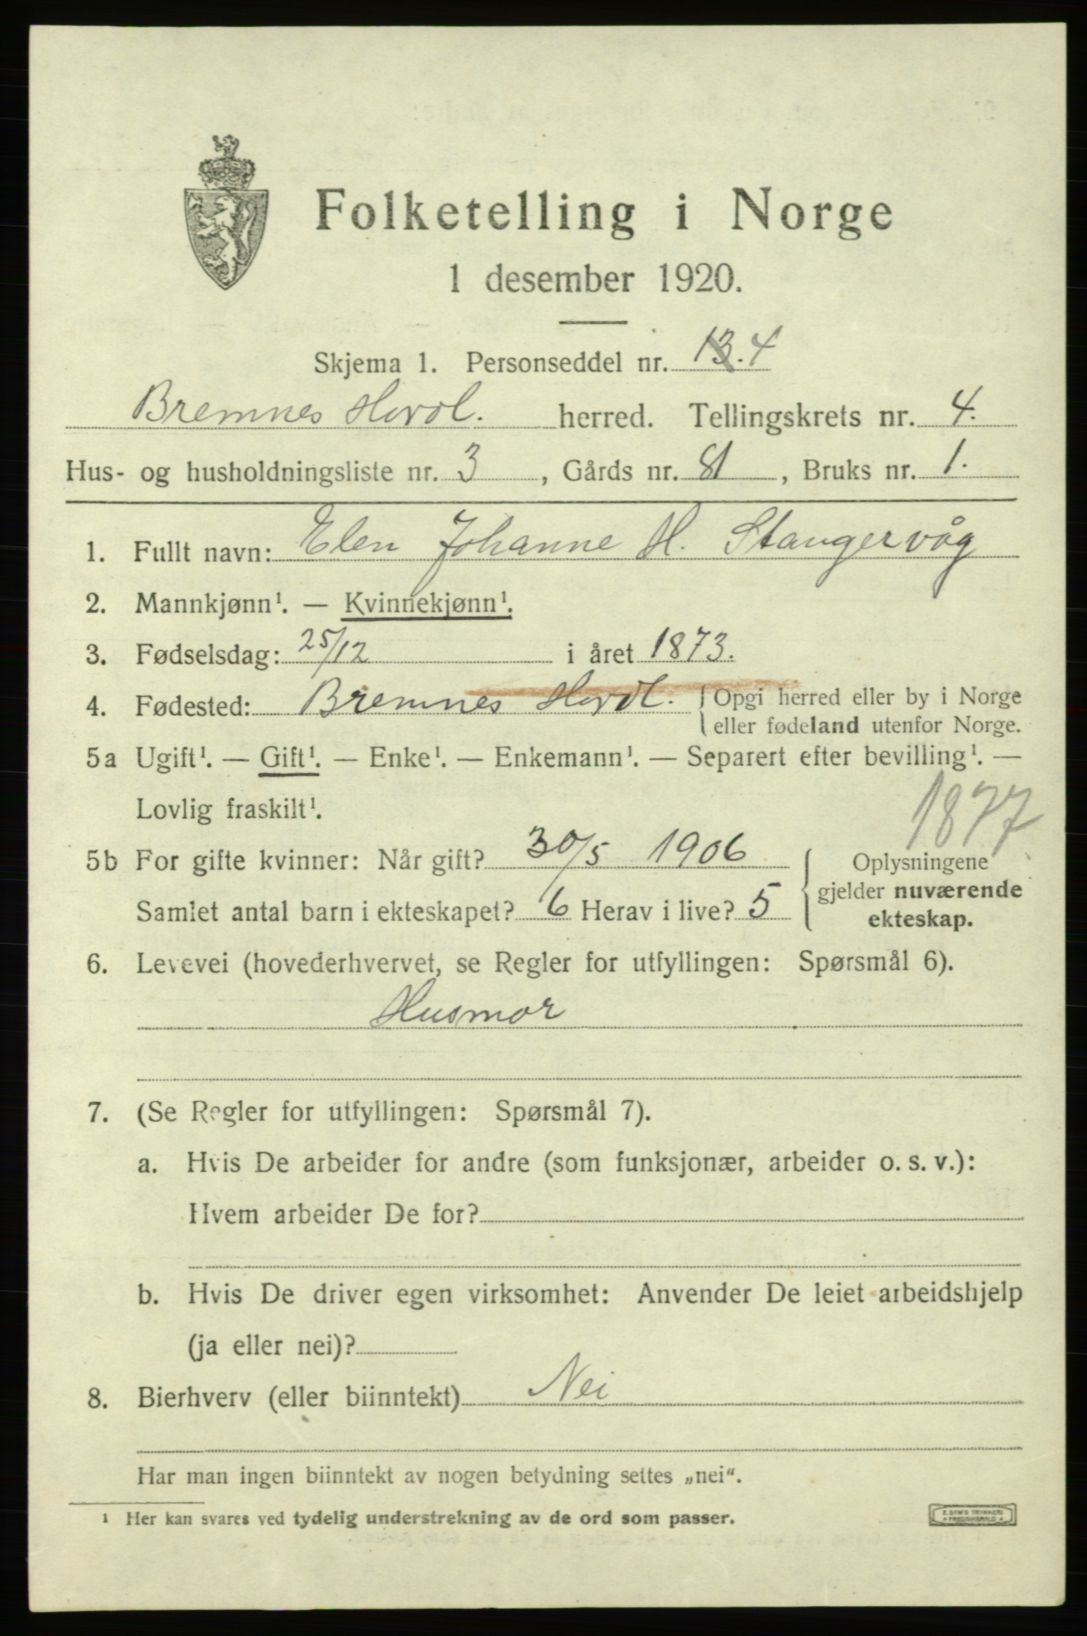 Folketelling i Norge
1 desember 1920.
Skjema 1. Personseddel nr. 13. 4
Bremnes Hordl. herred. Tellingskrets nr. 4.
Hus- og husholdningsliste nr. 3, Gårds nr. 81, Bruks nr. 1.
1. Fullt navn: Elen Johanne H. Stangervåg
2. Mannkjønn¹. — Kvinnekjønn¹.
3. Fødselsdag: 25/12 i året 1873.
4. Fødested: Bremnes Hordl. {Opgi herred eller by i Norge
eller fødeland utenfor Norge.
5a Ugift¹. — Gift¹. — Enke¹. — Enkemann¹. — Separert efter bevilling¹. —
Lovlig fraskilt¹.
1877
5b For gifte kvinner: Når gift? 30/5 1906 { Oplysningene
gjelder nuværende
Samlet antal barn i ekteskapet? 6 Herav i live? 5
ekteskap.
6. Levevei (hovederhvervet, se Regler for utfyllingen: Spørsmål 6).
Husmor
7. (Se Regler for utfyllingen: Spørsmål 7).
a. Hvis De arbeider for andre (som funksjonær, arbeider o. s. v.):
Hvem arbeider De for?
b. Hvis De driver egen virksomhet: Anvender De leiet arbeidshjelp
(ja eller nei)?
8. Bierhverv (eller biinntekt) Nei
Har man ingen biinntekt av nogen betydning settes „nei“.
¹ Her kan svares ved tydelig understrekning av de ord som passer.